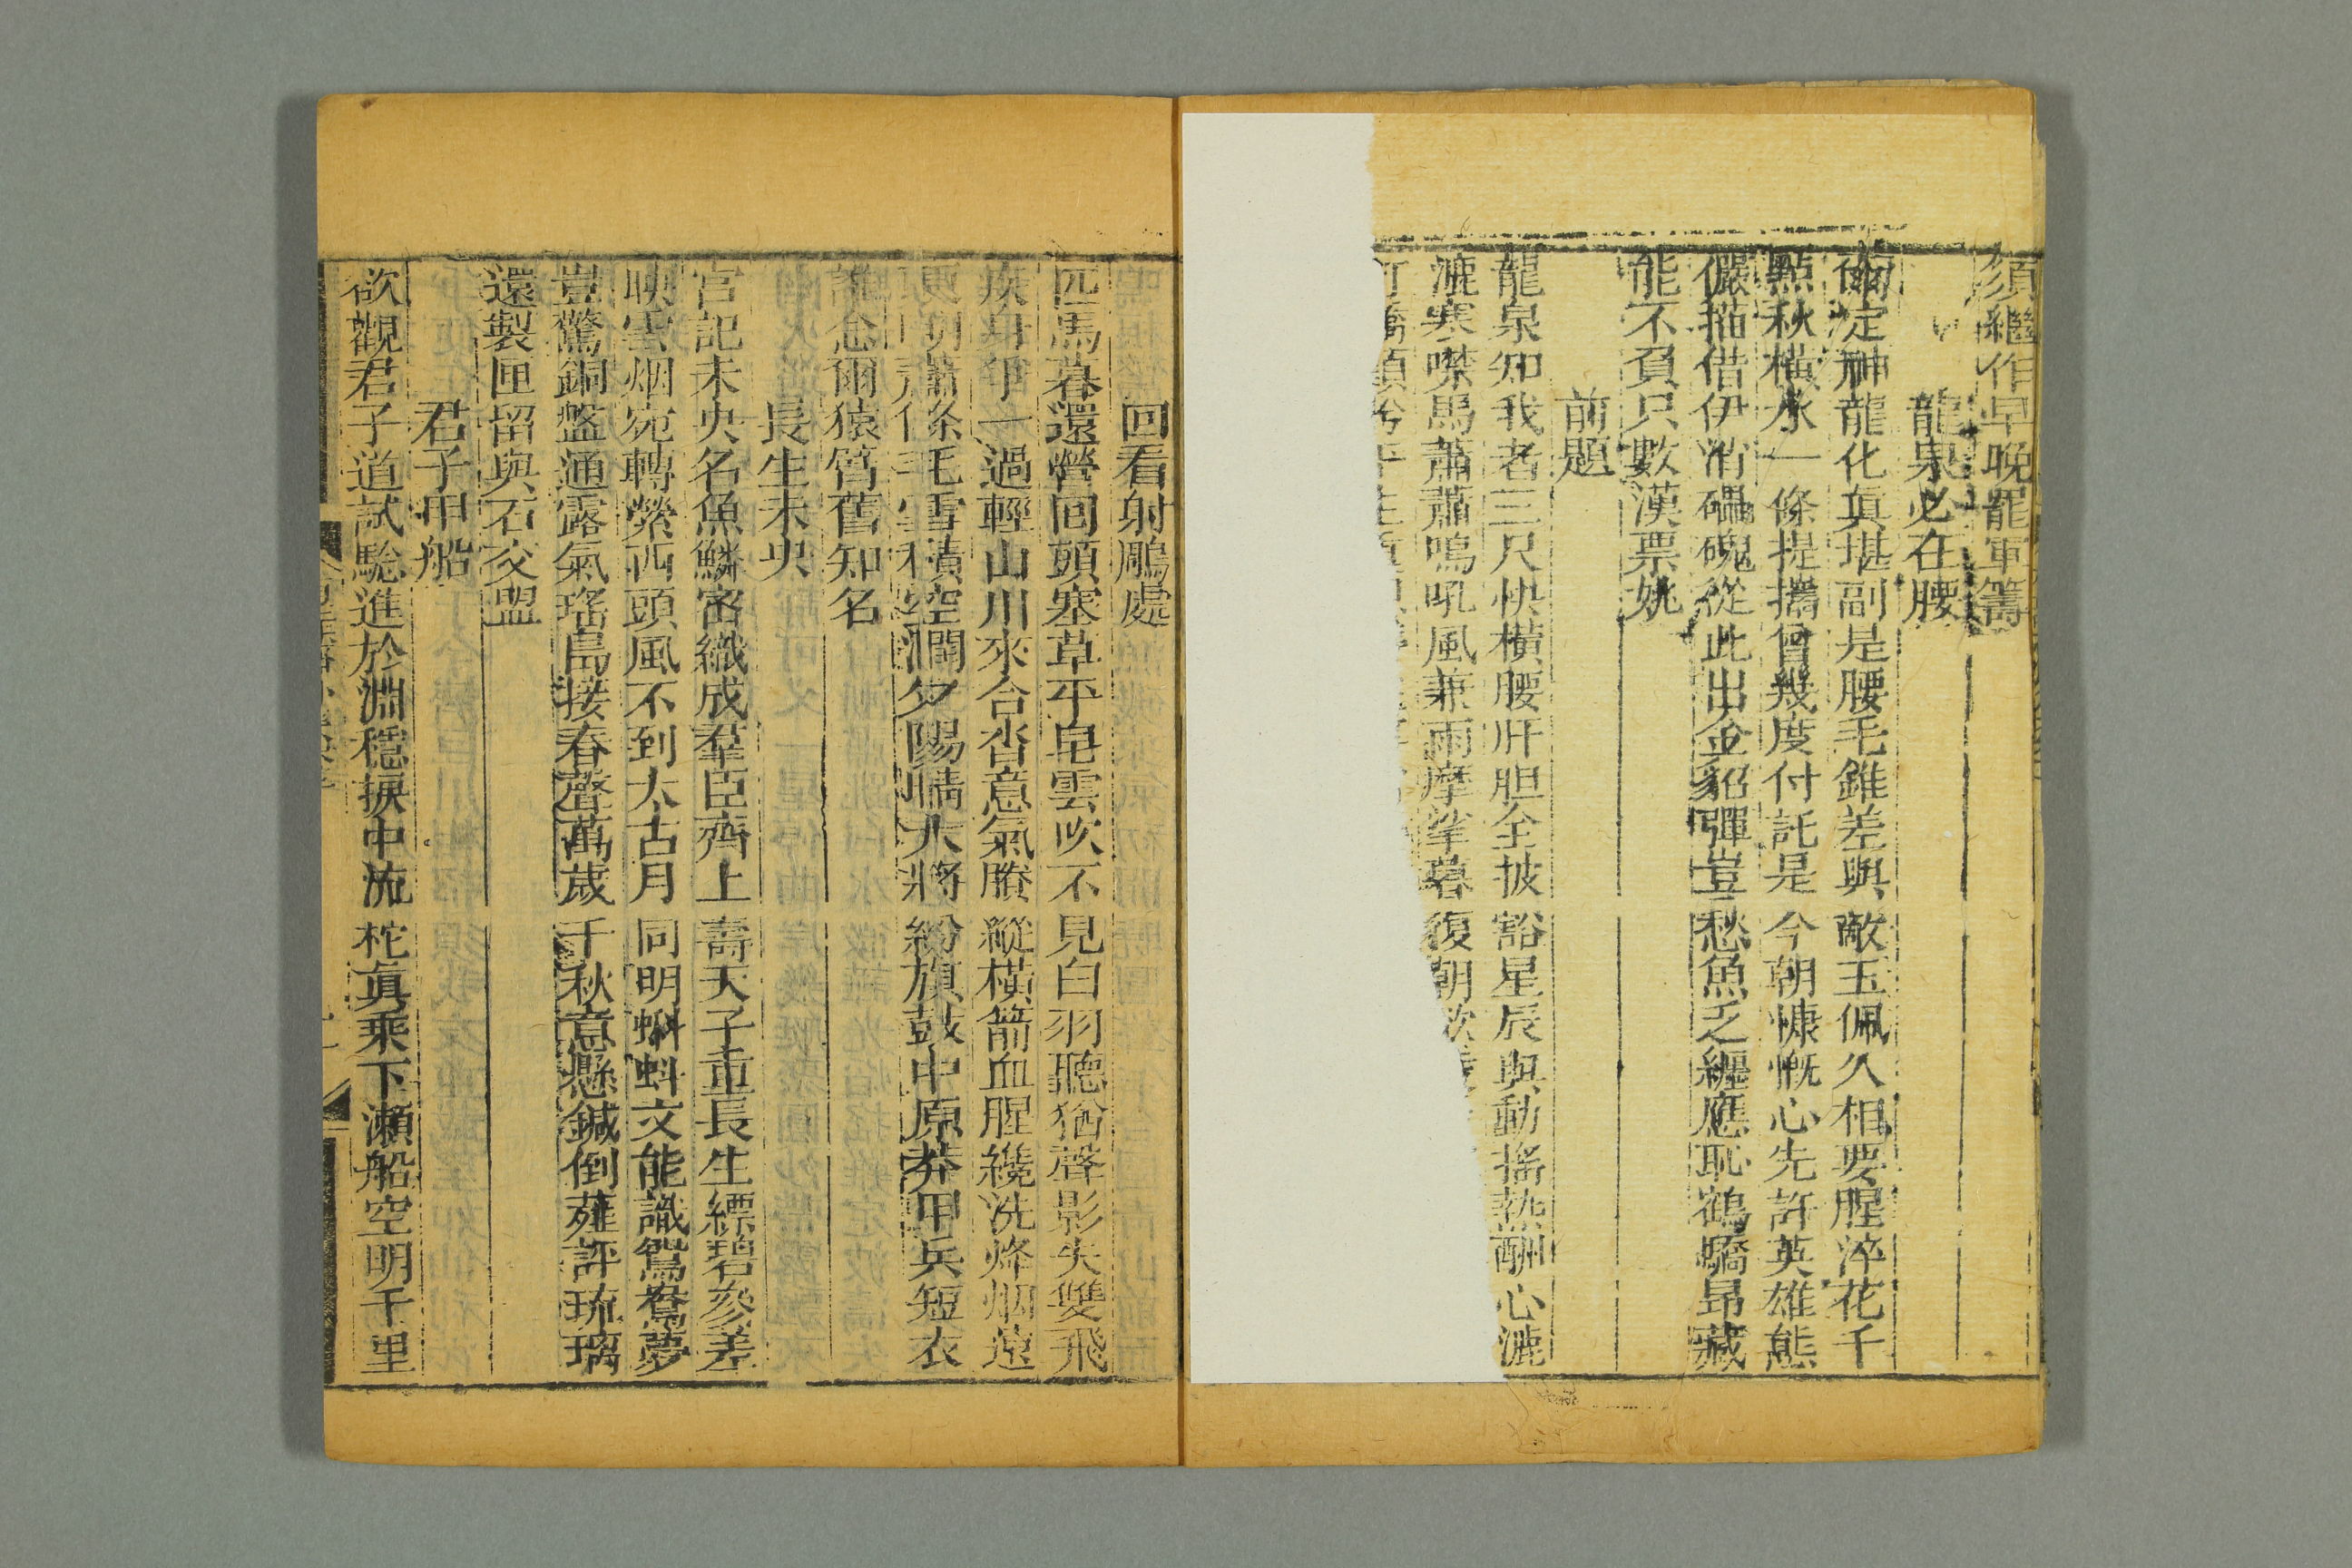 須繼作早晚罷軍籌
龍泉必在腰
淀神龍化眞堪副是腰毛錐差與敵玉佩久相要腥淬花千
點秋橫水一條提攜曾幾度付託是今朝慷慨心先許英雄態
儼描借伊消礧磈從此出金貂彈豈愁魚乏纏應恥鶴驕昻藏
能不負只數漢票姚
前題
龍泉知我者三尺快橫腰肝胆全披豁星辰與動搖熱酬心漉
漉寒噤馬蕭蕭鳴吼風兼雨摩挲暮復朝
回看射鵰處
匹馬暮還營回頭塞草平皂雲吹不見白羽聽猶聲影失雙飛
一過輕山川來合沓意氣勝縱橫箭血腥纔洗烽烟遠
蕭條毛雪積空澗夕陽晴大將紛旗鼓中原莽甲兵短衣
誰念爾猿臂舊知名
長生未央
宮記未央名魚鱗密織成羣臣齊上壽天子重長生縹碧參差
映雲烟宛轉縈西頭風不到太古月同明蝌蚪文能識鴛鴦夢
豈驚銅盤通露氣瑤島接春聲萬歲千秋意懸鍼倒薤評琉璃
還製匣留與石交盟
君子用船
欲觀君子道試驗進於淵穩捩中流柁眞乘下瀨船空明千里